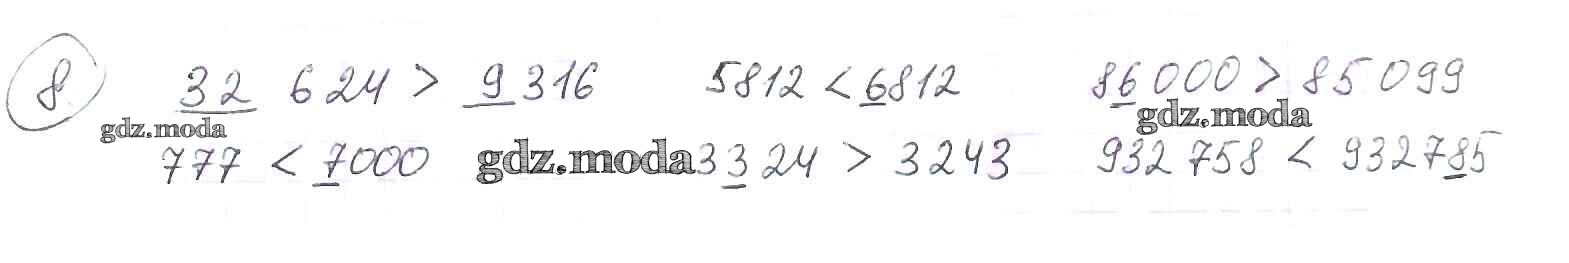 8 32 624 > 9 316 5812 < 6812 86000 > 85 099
gdz.moda gdz.moda
777 < 7000 gdz.moda 3324 > 3243 932 758 < 932785